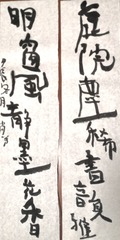 庭院塵稀書韻雅
明窗風靜墨花香